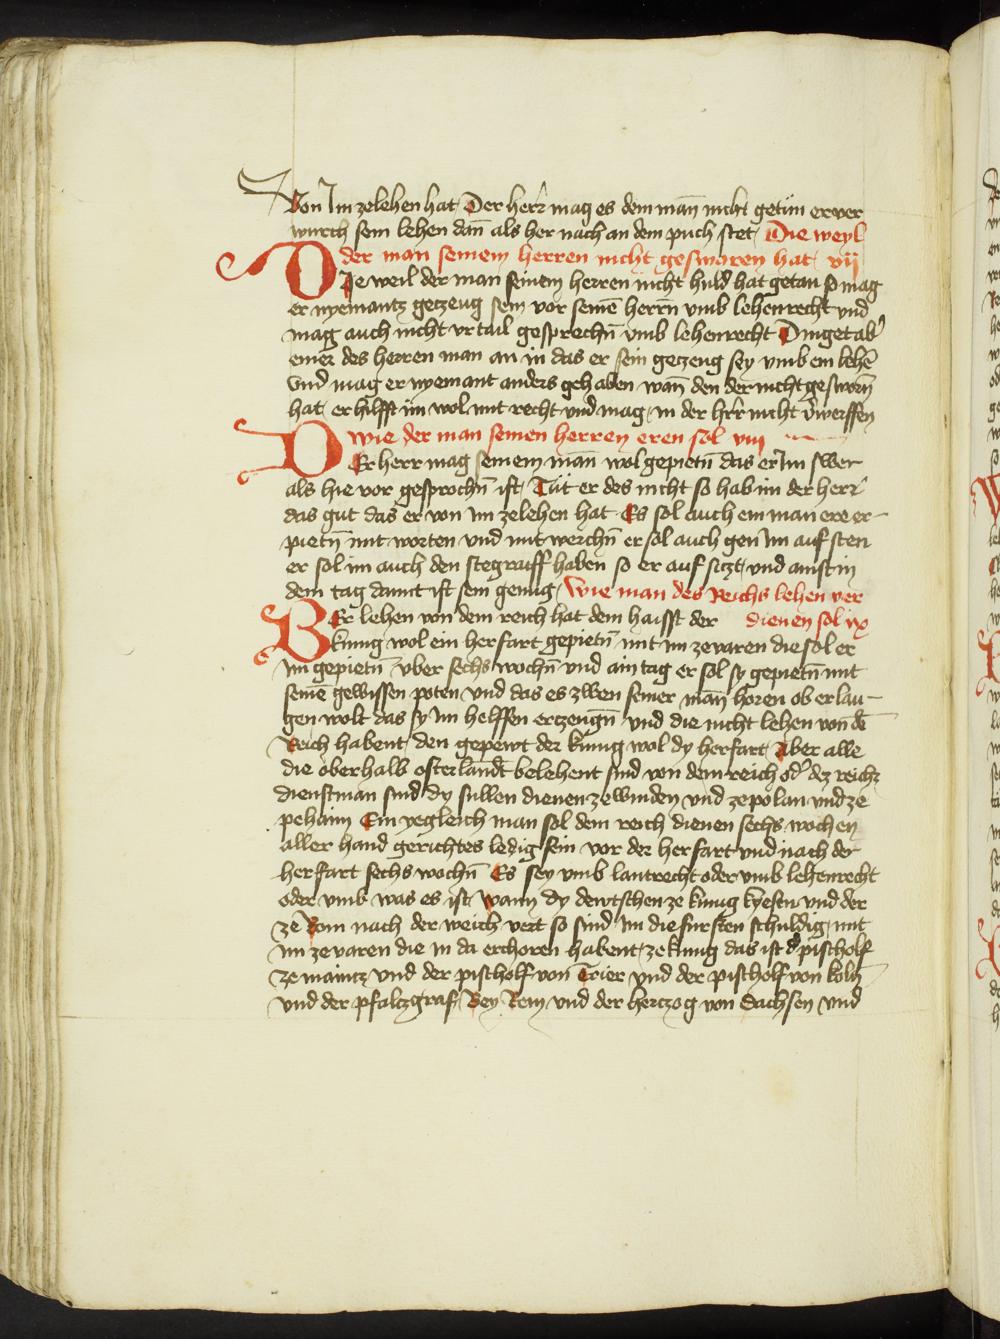 Von Im zelehen hat Der herr mag es dem man̄ nicht getün er ver
wurch sein lehen dan̄ als her nach an dem puch stet Die weyl
der man seinem herren nicht gesworen hat vij
DIe weil der man seinem herren nicht huld hat getan so mag
er nyemantz geczeug sein vor seinē herrn̄ vmb lehenrecht vnd
mag auch nicht vrtail gesprechn̄ vmb lehenrecht Dinget ab̾
einer des herren man an in das er sein geczeug sey vmb ein lehē
Vnd mag er nyemant anders gehaben wan̄ den der nicht gesworn̄
hat er hilfft im wol mit recht vnd mag in der herr nicht v̾werffen
wie der man seinen herren eren sol viij
DEr herr mag seinem man̄ wol gepietn̄ das er Im swer
als hie vor gesprochn̄ ist Tüt er des nicht so hab im der herr
das gut das er von im zelehen hat Es sol auch ein man ere er-
pietn̄ mit worten vnd mit werchn̄ er sol auch gen Im auf sten
er sol im auch den stegraiff haben so er auf siczt vnd ainst in
dem tag damit ist sein genüg Wie man des Reichs lehen ver
WEr lehen von dem reich hat dem haisst der dienen sol ix
kunig wol ein herfart gepietn̄ mit im zevaren die sol er
Im gepietn̄ vber sechs wochn̄ vnd ain tag er sol sy gepietn̄ mit
seinē gewissen poten vnd das es zwen seiner man̄ horen ob er lau-
gen wolt das sy Im helffen erczeugn̄ vnd die nicht lehen von dē
Reich habent den gepewt der kunig wol dy herfart Aber alle
die oberhalb osterlandt belehent sind von dem reich od̾ dez reichz
dienstman sind dy sullen dienen zewinden vnd zepolan vnd ze
pehaim Ein yegleich man sol dem reich dienen sechs wochen
aller hand gerichtes ledig sein vor der herfart vnd nach der
herfart sechs wochn̄ Es sey vmb lantrecht oder vmb lehenrecht
oder vmb was es ist wann dy dewtschen ze kunig kyesen vnd der
ze Rom nach der weich vert so sind Im die fursten schuldig mit
im zevaren die in da erchoren habent zekunig das ist d̾ pischolf
ze maintz vnd der pischolf von Trier vnd der pischolf von koln
vnd der pfaltzgraf Bey Rein vnd der herczog von Sachsen vnd